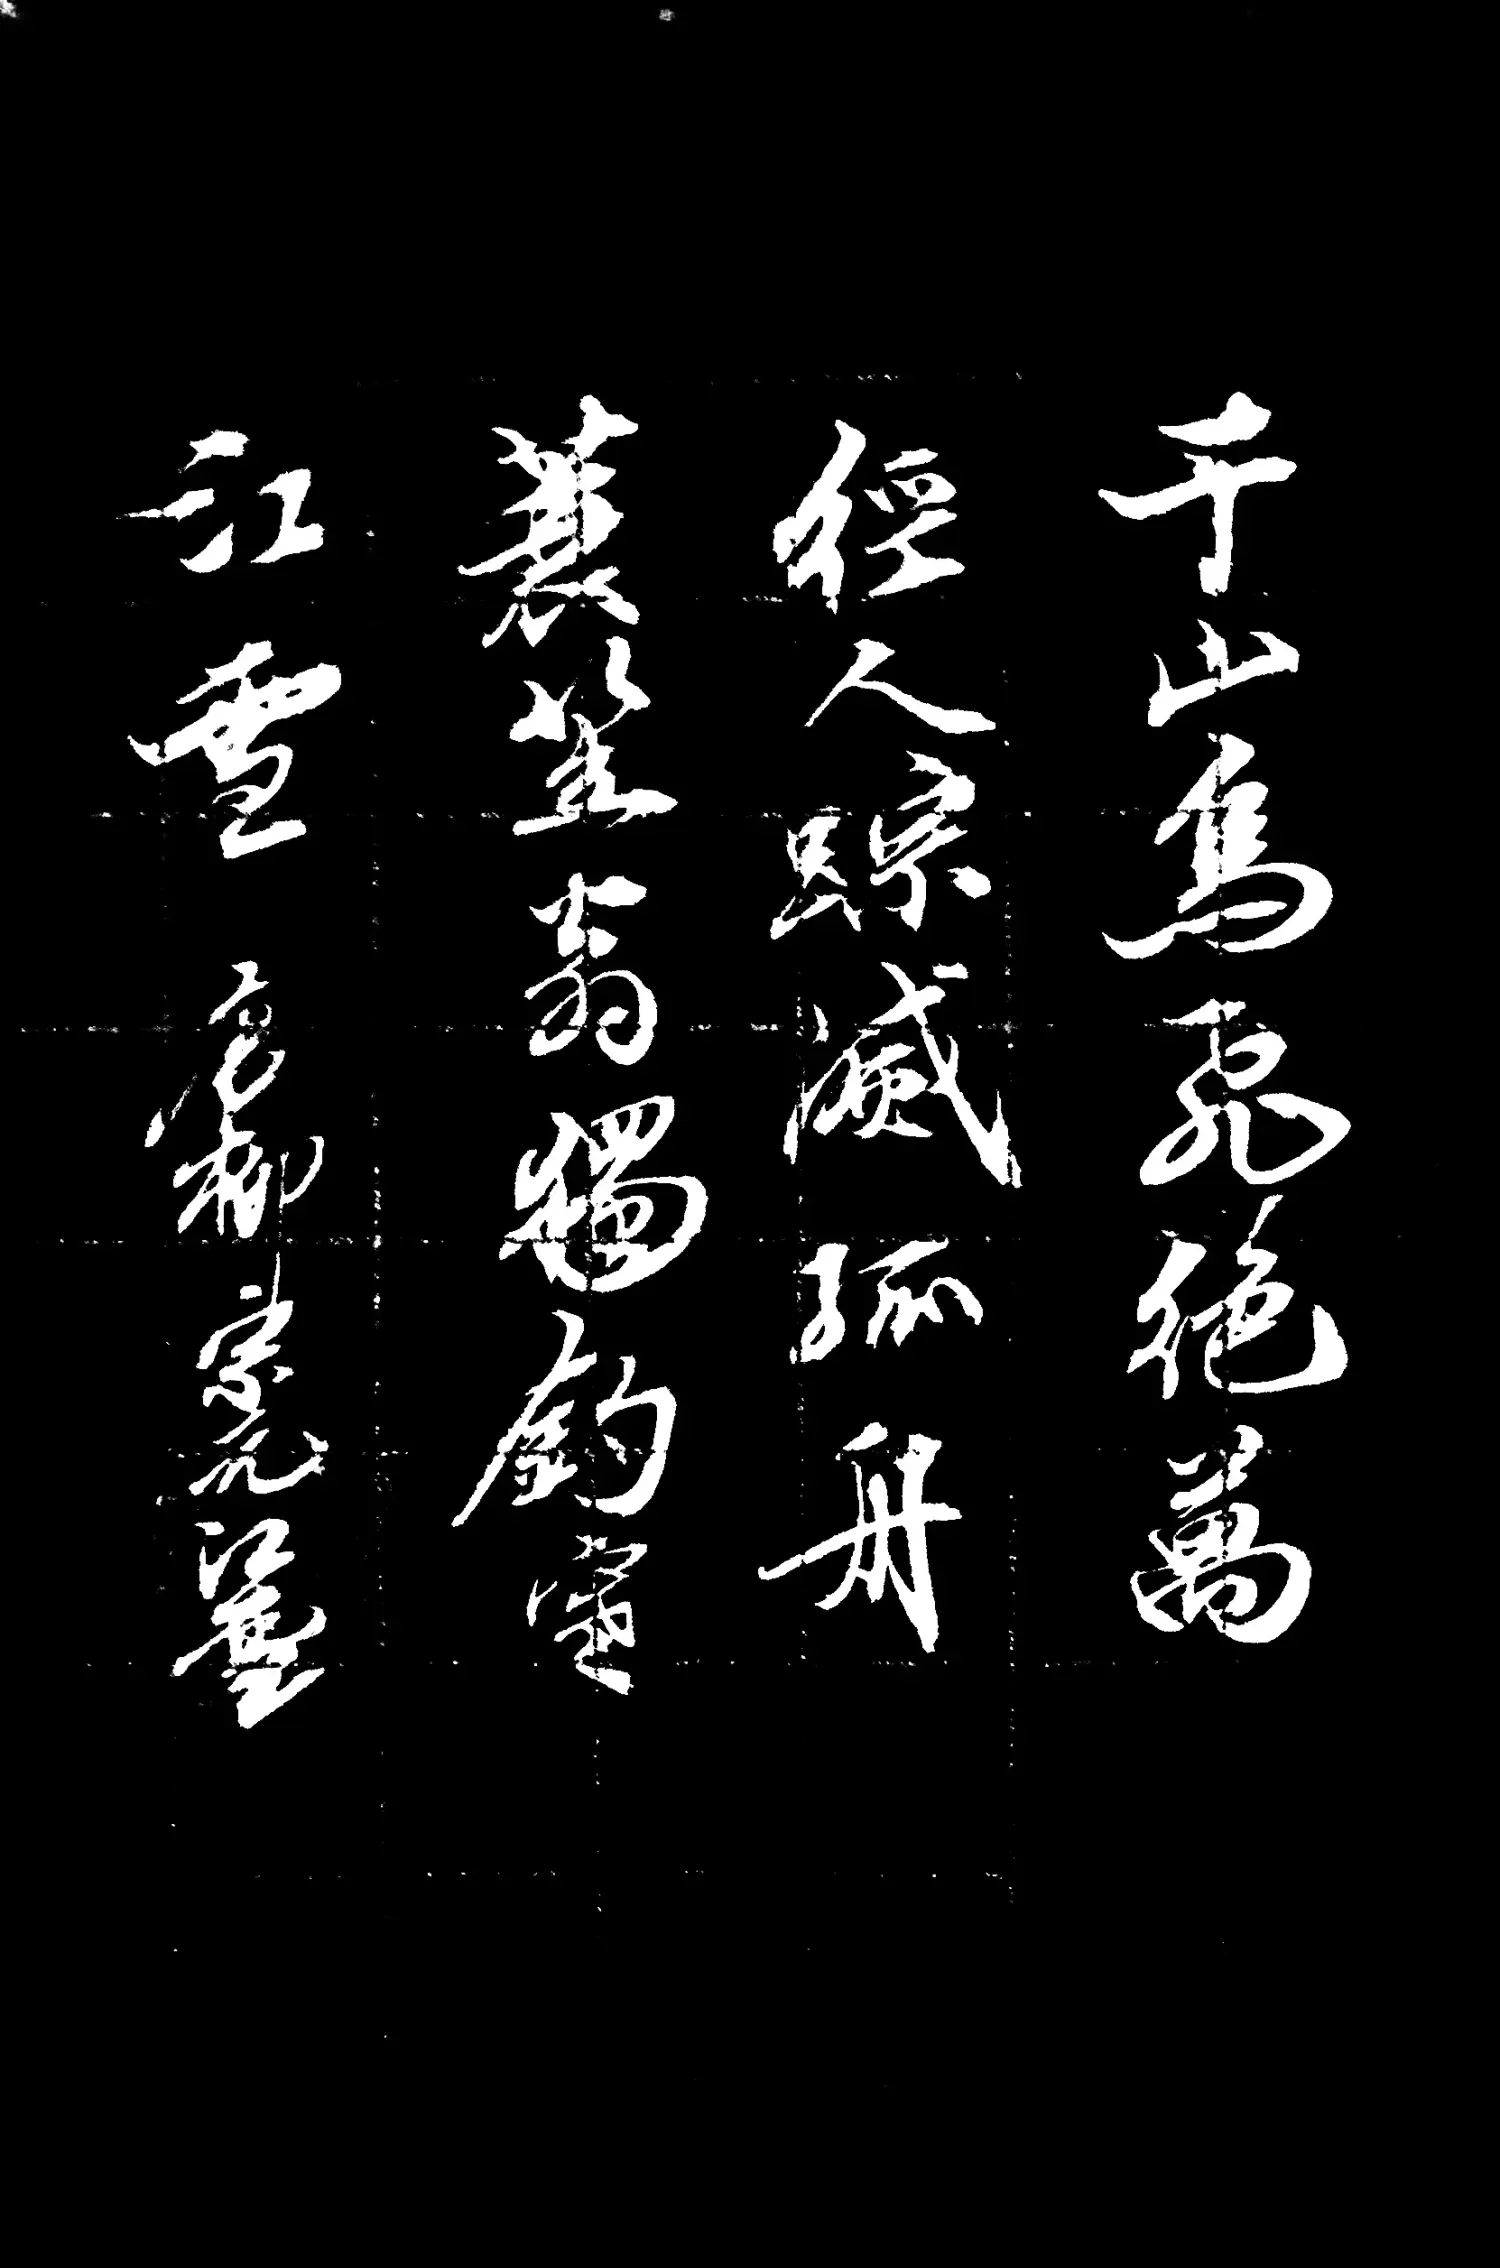 千山鳥飛絕萬
徑人蹤滅孤舟
蓑笠翁獨釣寒
江雪 唐柳宗元江雪